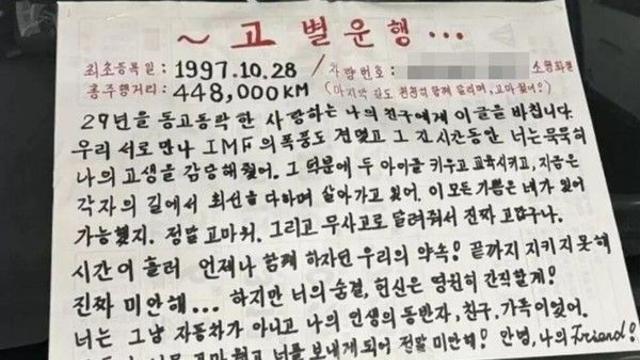 ~ 고 별 운 행 ...
최초등록일 : 1997.10.28 / 차량번호 : 소명화물
총주행거리 : 448,000KM (마지막 길도 천천히 함께 달리며, 고마웠어!)
29년을 동고동락 한 사랑하는 나의 친구에게 이 글을 바칩니다.
우리 서로 만나 IMF의 폭풍도 견뎠고 그 긴 시간동안 너는 묵묵히
나의 고생을 감당해줬어. 그 덕분에 두 아이를 키우고 교육시키고, 지금은
각자의 길에서 최선을 다하며 살아가고 있어. 이 모든 기쁨은 네가 있어
가능했지. 정말 고마워. 그리고 무사고로 달려줘서 진짜 고맙구나.
시간이 흘러 언제나 함께 하자던 우리의 약속! 끝까지 지키지 못해
진짜 미안해... 하지만 너의 숨결, 헌신은 영원히 간직할게!
너는 그냥 자동차가 아니고 나의 인생의 동반자, 친구, 가족이었어.
고마웠고 너를 보내게 되어 정말 미안해! 안녕, 나의 Friend!